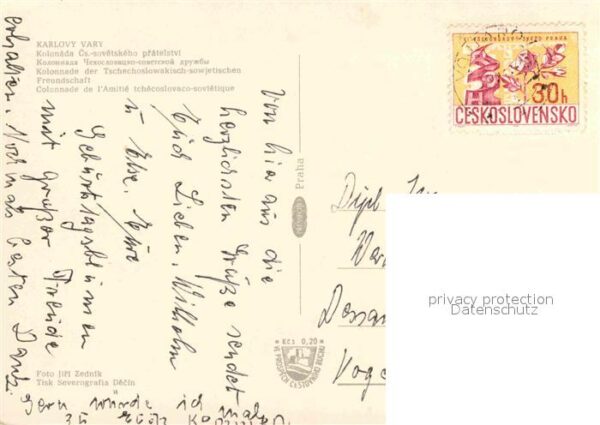 KARLOVY VARY
Kolonáda Čs.-sovětského přátelství
Колоннада Чехословацко-советской дружбы
Kolonnade der Tschechoslowakisch-sowjetischen
Freundschaft
Colonnade de l'Amitié tchécoslovaco-soviétique
PRAHA
30h
ČESKOSLOVENSKO
Von hier aus die
herzlichsten Grüße sendet
Euch Lieben, Wilhelm
u Else. Eure
Geburtstagsblumen
mit großer Freude
erhalten. Nochmals besten Dank.
Gern würde ich mal
zu Euch
Praha
Dipl
Dessau
Kčs 0,20
VE PROSPĚCH CESTOVNÍHO RUCHU
privacy protection
Datenschutz
Foto Jiří Zedník
Tisk Severografia Děčín